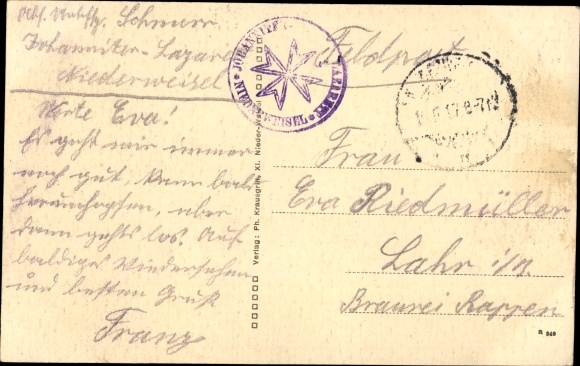 Schnurr
Johanniter-Lazare
Niederweisel
Feldpost
JOHANNITER LAZARETT
NIEDERWEISEL
Werte Eva!
Es geht mir immer
noch gut, kann bald
herumhopfen, aber
dann gehts los. Auf
baldiges Wiedersehen
und besten Gruß
Franz
Verlag: Ph. Krausgrill, XI. Nieder-Weisel
Frau
Eva Riedmüller
Lahr i/B.
Brauerei Rappen